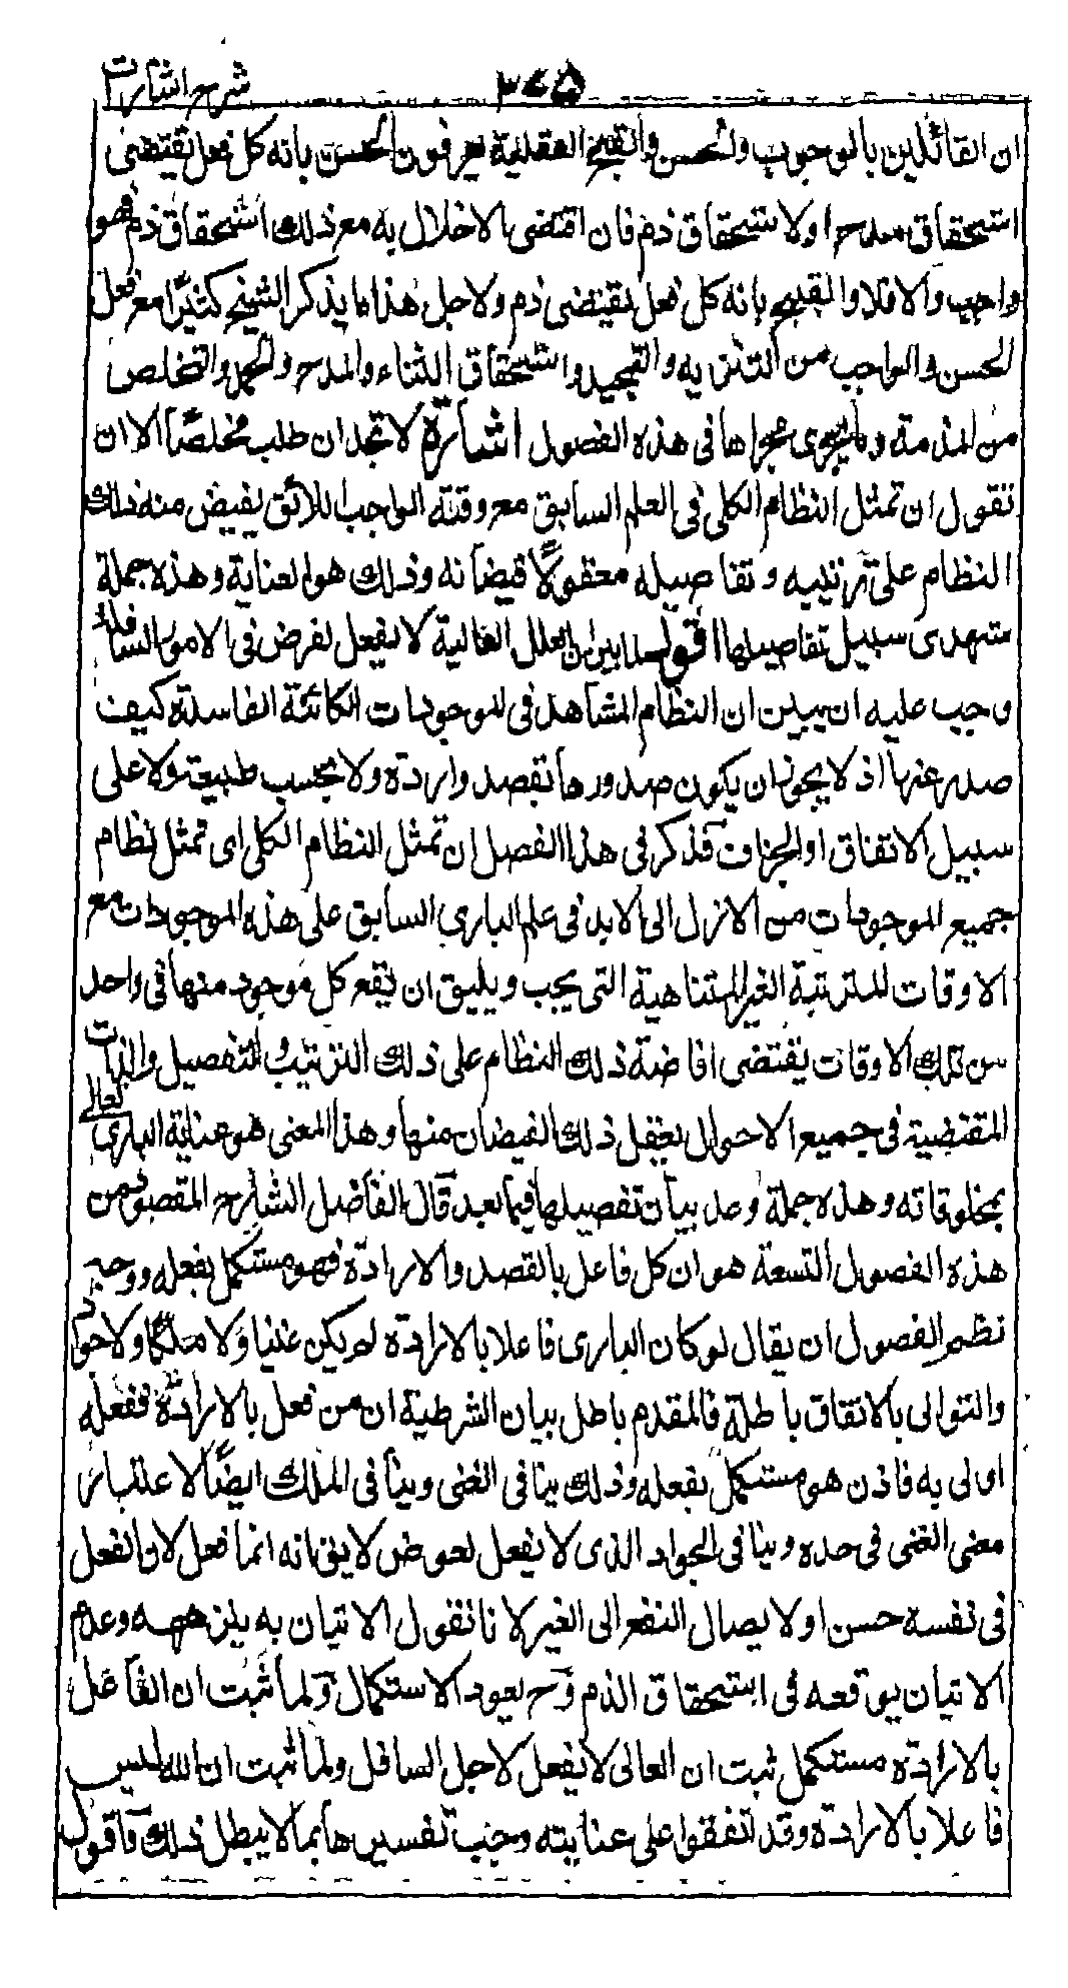 شرح اشارات ٣٦٥
ان القائلين بالوجوب والحسن والقبح العقلية يعرفون الحسن بانه كل فعل يقتضى
استحقاق مدح او لا استحقاق ذم فان اقتضى الاخلال به مع ذلك استحقاق ذم فهو
واجب والا فلا والقبيح بانه كل فعل يقتضى ذم ولاجل هذا ما يذكر الشيخ كثيرًا مع فعل
الحسن والواجب من التنزيه والتمجيد واستحقاق الثناء والمدح والحمد والتخلص
من المذمة وما يجرى مجراها فى هذه الفصول اشارة لا تجد ان طلب مخلصًا الا ان
نقول ان تمثل النظام الكلى فى العلم السابق مع وقته الواجب اللائق يفيض منه ذلك
النظام على ترتيبه و تفاصيله معقولًا فيضانه وذلك هو العناية وهذه جملة
ستهدى سبيل تفاصيلها اقول لما بين ان العلل العالية لا يفعل لغرض فى الامور السافلة
وجب عليه ان يبين ان النظام المشاهد فى الموجودات الكائنة الفاسدة كيف
صدر عنها اذ لا يجوز ان يكون صدورها بقصد وارادة ولا بحسب طبيعة ولا على
سبيل الاتفاق او الجزاف فذكر فى هذا الفصل ان تمثل النظام الكلى اى تمثل نظام
جميع الموجودات من الازل الى الابد فى علم البارى السابق على هذه الموجودات مع
الاوقات المترتبة الغير المتناهية التى يجب ويليق ان يقع كل موجود منها فى واحد
من تلك الاوقات يقتضى افاضة ذلك النظام على ذلك الترتيب و التفصيل والذات
المقتضية فى جميع الاحوال يعقل ذلك الفيضان منها وهذا المعنى هو عناية البارى تعالى
بمخلوقاته وهذه جملة وعد بيان تفصيلها فيما بعد قال الفاضل الشارح المقصود من
هذه الفصول التسعة هو ان كل فاعل بالقصد والارادة فهو مستكمل بفعله ووجه
نظم الفصول ان يقال لو كان البارى فاعلا بالارادة لم يكن غنيا ولا ملكًا ولا جوادا
والتوالى بالاتفاق باطلة فالمقدم باطل بيان الشرطية ان من فعل بالارادة ففعله
اولى به فاذن هو مستكمل بفعله وذلك ينافى الغنى وينافى الملك ايضًا لاعتبار
معنى الغنى فى حده وينافى الجواد الذى لا يفعل لعوض لا يق انه انما فعل لان الفعل
فى نفسه حسن او لايصال النفع الى الغير لانا نقول الاتيان به ينزهه وعدم
الاتيان يوقعه فى استحقاق الذم وح يعود الاستكمال ولما ثبت ان الفاعل
بالارادة مستكمل ثبت ان العالى لا يفعل لاجل السافل ولما ثبت ان الله ليس
فاعلا بالارادة وقد اتفقوا على عنايته وجب تفسيرها بما لا يبطل ذلك فاقول